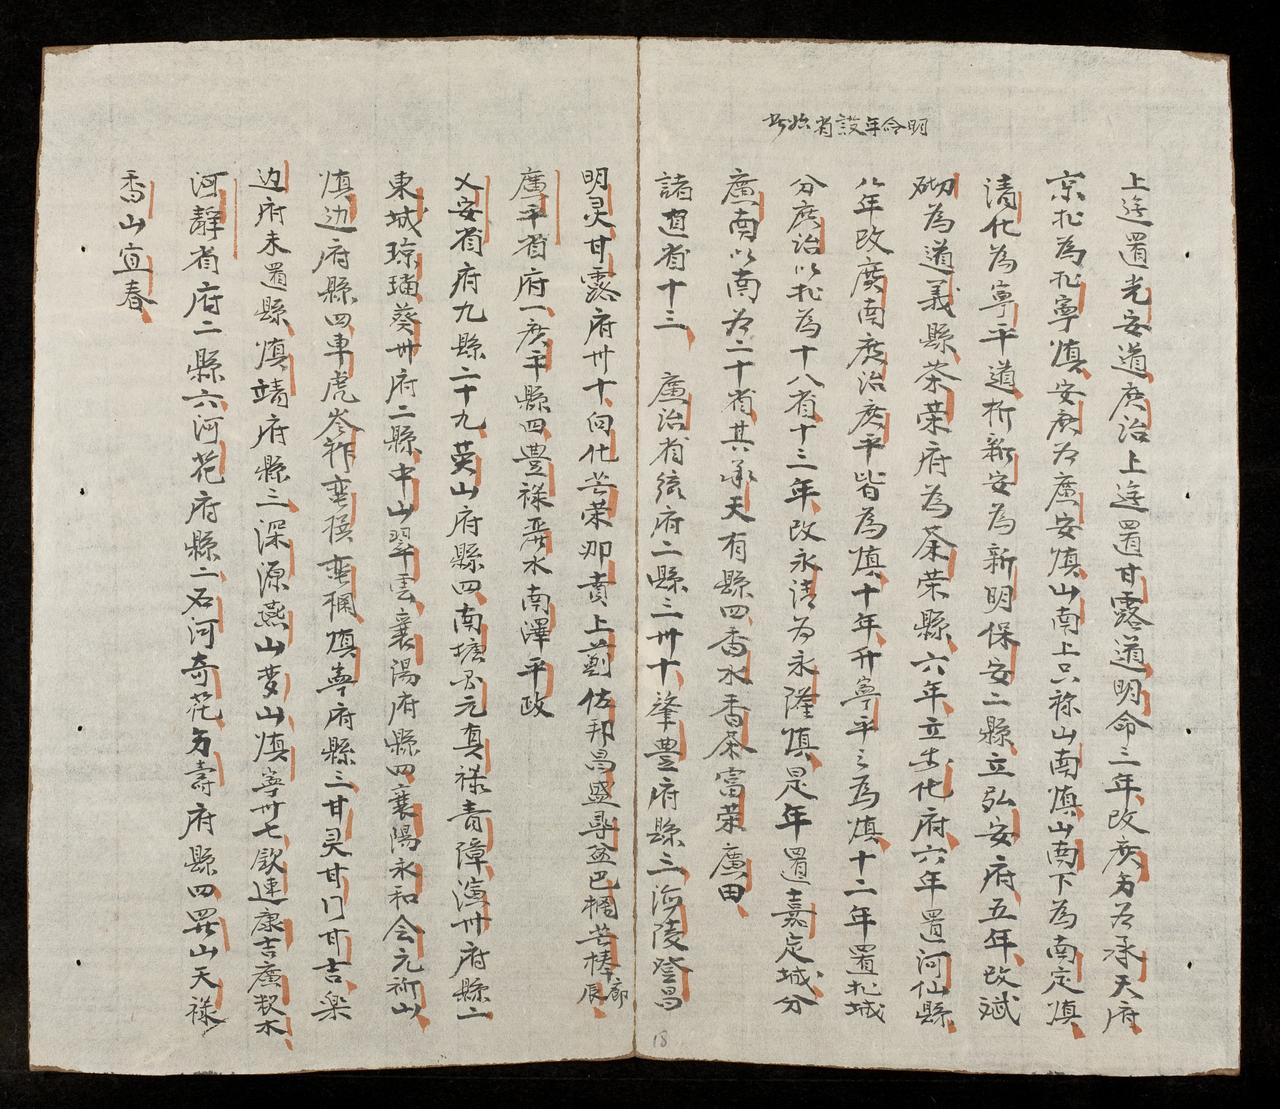 明命年設省始此
上遊置光安道庹治上遊置甘露道明命三年改庹为为承天府
京北為北寧鎮安庹为廣安鎮山南上只祿山南鎮山南下為南定鎮
清化為寧平道析新安為新明保安二縣立弘安府五年改斌
砌為道義縣茶荣府為茶荣縣六年立安化府六年置河仙縣
八年改廣南庹治庹平皆為鎮十年升寧平之為鎮十二年置北城
分庹治以北為十八省十三年改永清为永隆鎮是年置嘉定城分
廣南以南为二十省其承天有縣四香水香茶富荣廣田
諸道省十三 廣治省統府二縣三卅十肇豊府縣三海陵登昌
明灵甘露府卅十向化芒荣那賁上蓟佐邦昌盛尋盆巴楊芒棒廊辰
廣平省府一庹平縣四豊禄麗水南澤平政
乂安省府九縣二十九英山府縣四南塘元真禄青障演卅府縣二
東城琼瑠葵卅府二縣中山翠雲襄陽府縣四襄陽永和会元祈山
鎮边府縣四車虎岑祚蛮撰蛮欄鎮寧府縣三甘灵甘门甘吉樂
边府未置縣鎮靖府縣三深源燕山夢山鎮寧卅七欽連康吉廣契木
河靜省府二縣六河花府縣二石河奇花为壽府縣四羅山天禄
香山宜春
18